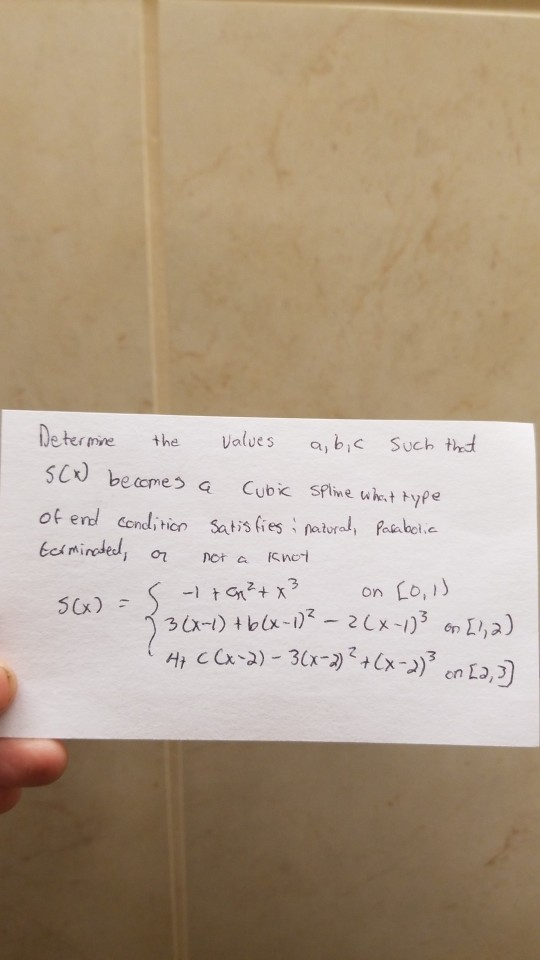 Determine the values a, b, c such that
S(x) becomes a cubic spline what type
of end condition satisfies : natural, Parabolic
terminated, or not a knot
S(x) = { -1 + ax² + x³ on [0,1)
3(x-1) + b(x-1)² - 2(x-1)³ on [1,2)
4+ c(x-2) - 3(x-2)² + (x-2)³ on [2,3]